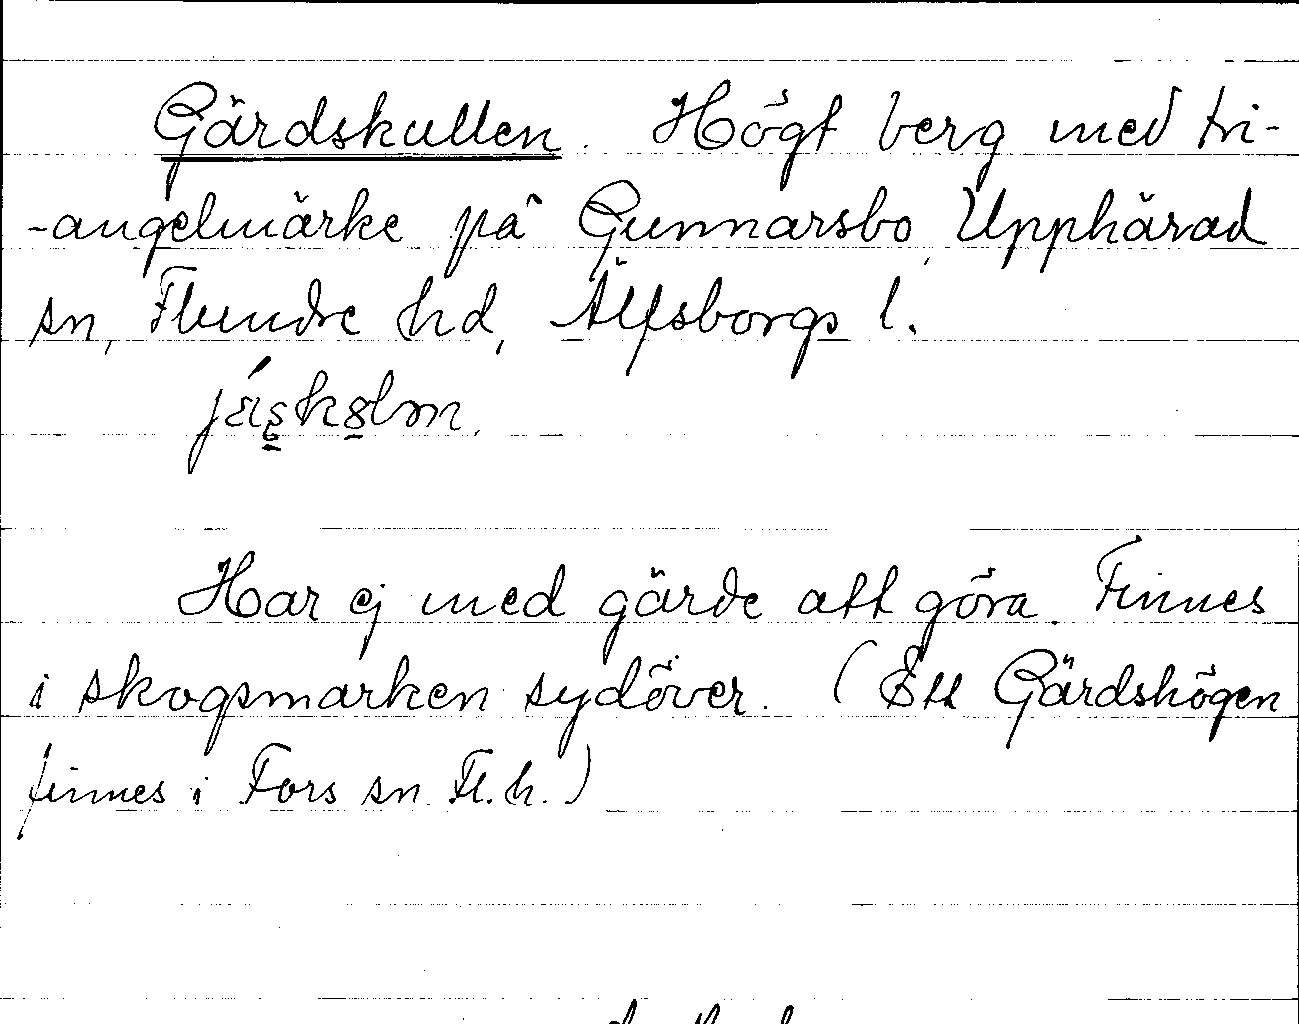 Gärdskullen. Högt berg med tri-
-angelmärke på Gunnarsbo, Upphärad
sn, Flundre hd, Älfsborgs l.
Har ej med gärde att göra. Finnes
i skogsmarken sydöver. (Ett Gärdshögen
finnes i Fors sn. Fl. h.)